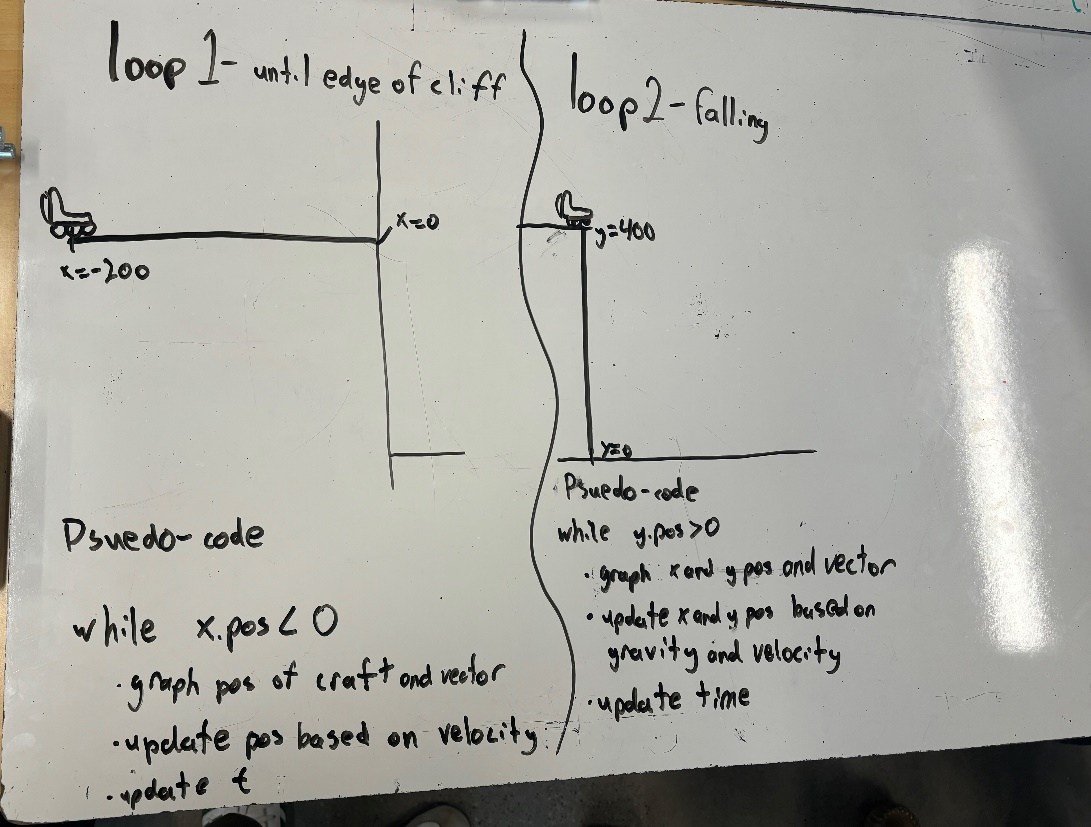 loop 1 - until edge of cliff
x=0
x=-200
Psuedo-code
while x.pos < 0
· graph pos of craft and vector
· update pos based on velocity
· update t
loop 2 - falling
y=400
y=0
Psuedo-code
while y.pos > 0
· graph x and y pos and vector
· update x and y pos based on
gravity and velocity
· update time